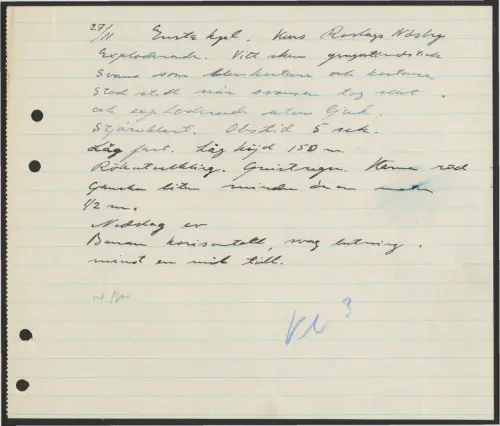 27/11 Enste kpl. Kurs Roslags Näsby
Exploderade. Vitt sken
Svans som blev kortare och kortare
Stod still när svansen tog slut.
och exploderade utan ljud.
Stjärnklart. Obstid 5 sek.
Låg fart. Låg höjd 150 m.
Rökutveckling. Gnistregn. Kärna röd
Ganska liten mindre än en
1/2 m.
Nedslag ev
Banan horisontell, svag lutning.
minst en mil till.
Vl 3